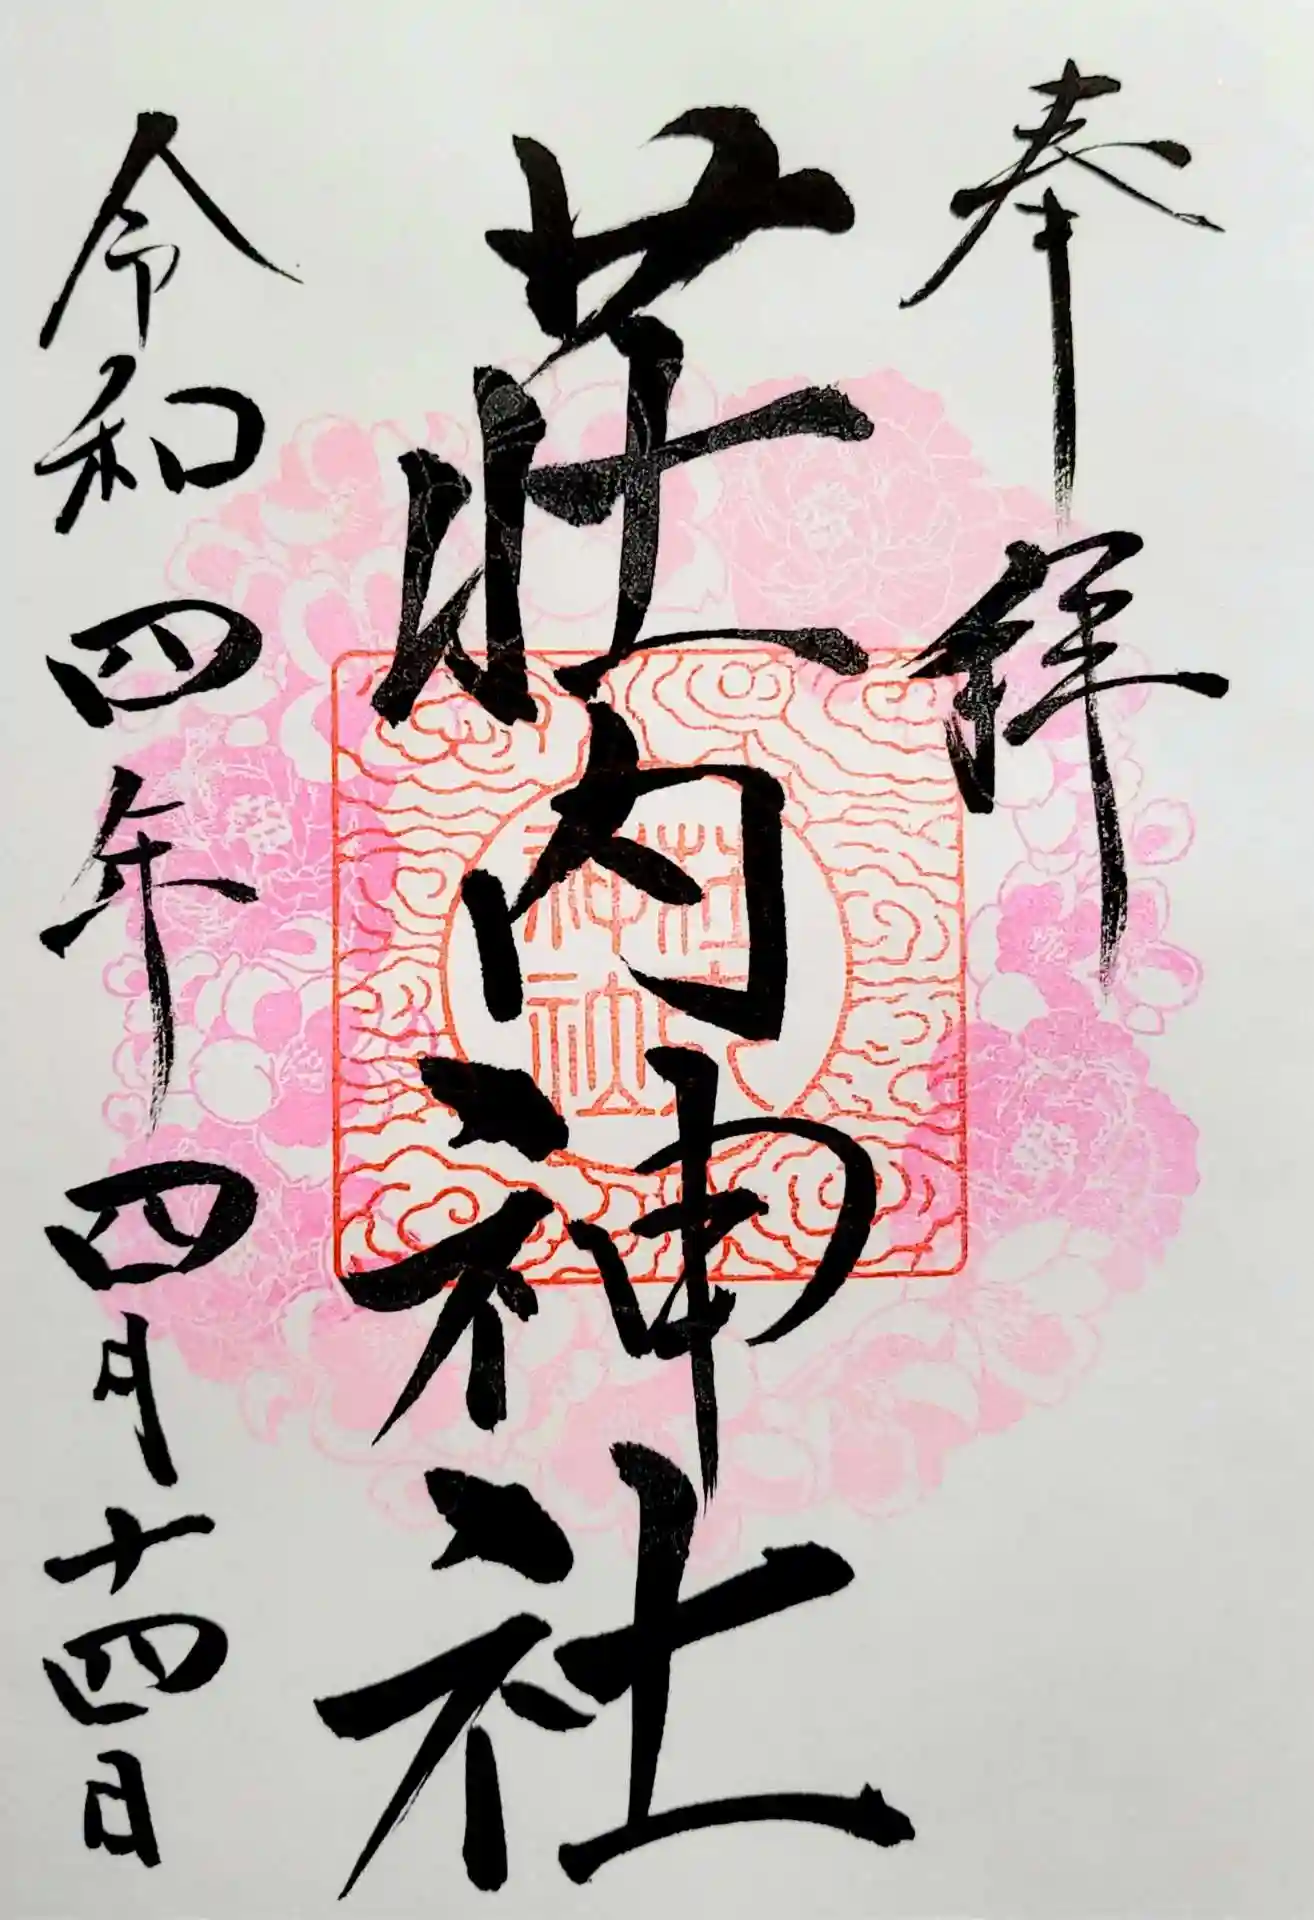 奉拝
荘内神社
荘内神社
令和四年四月十四日